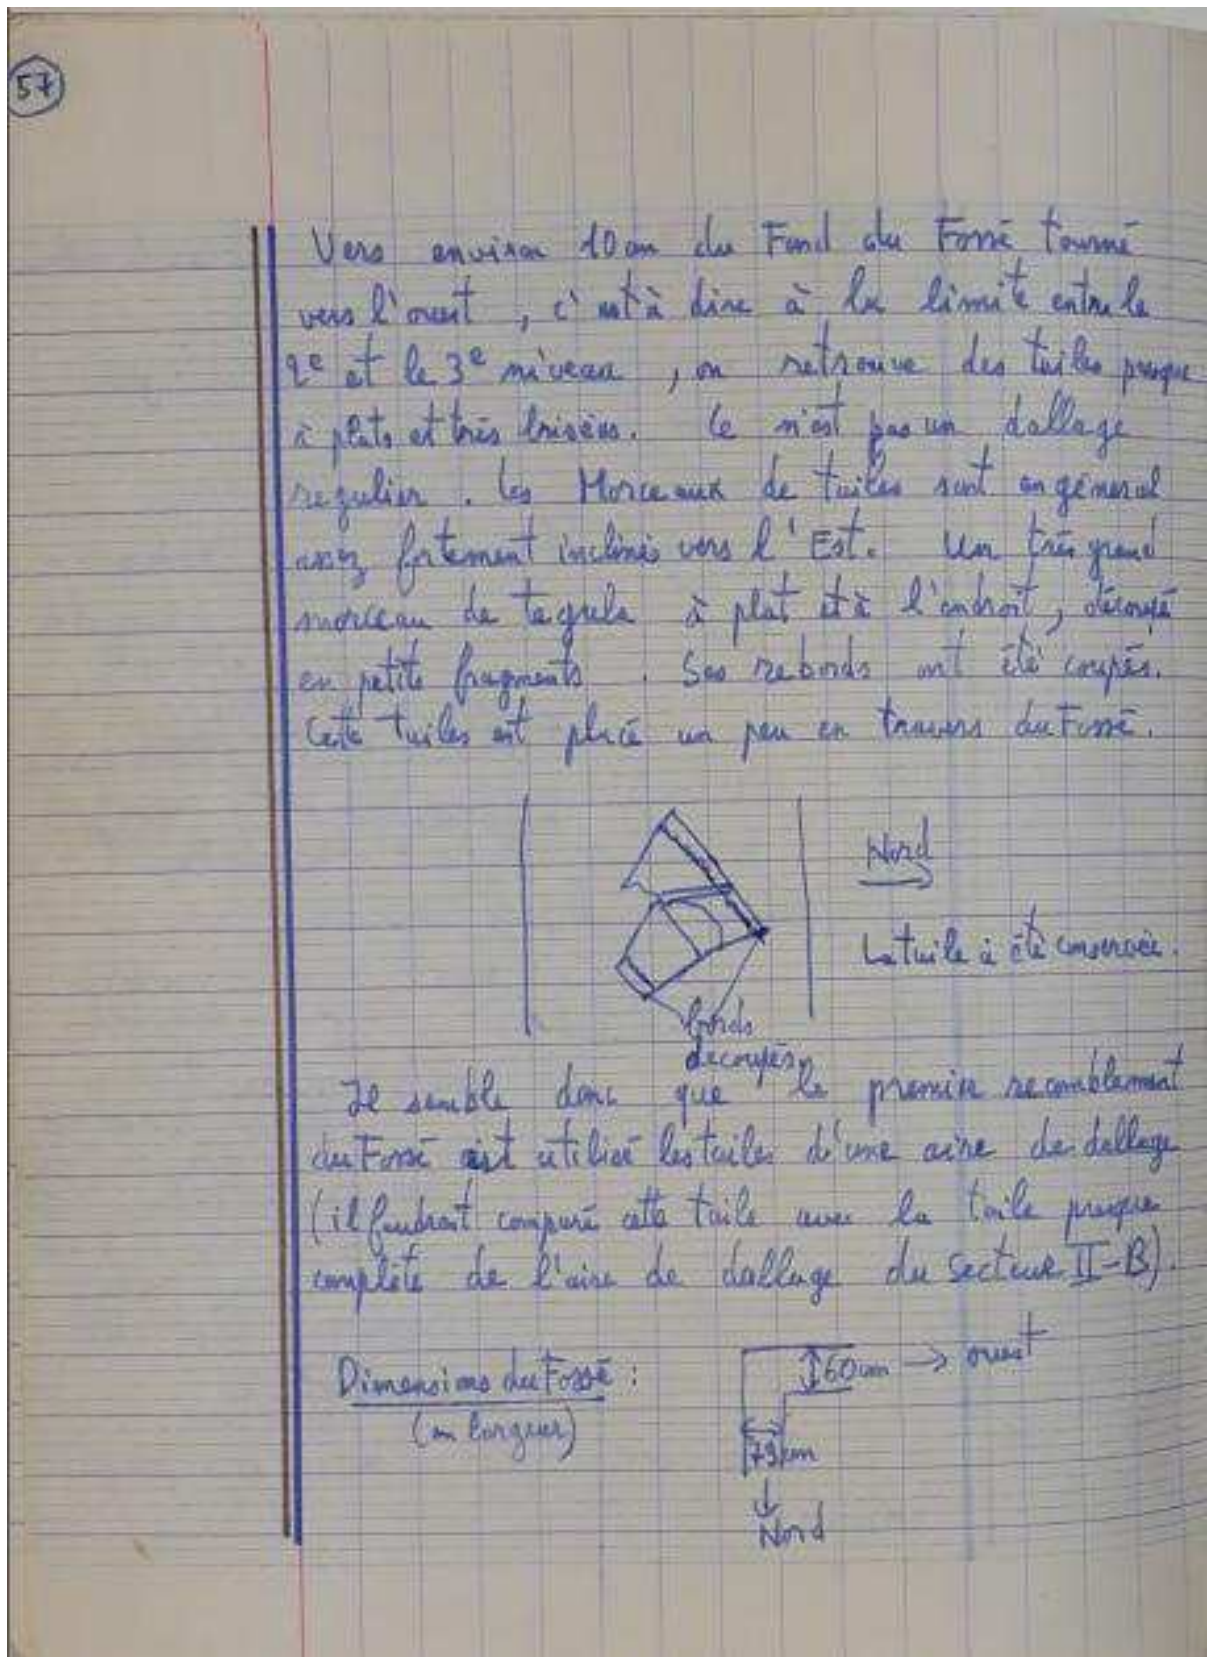 57
Vers environ 10 cm du Fond du Fossé tourné
vers l'ouest, c'est à dire à la limite entre le
2e et le 3e niveau, on retrouve des tuiles presque
à plats et très brisées. Ce n'est pas un dallage
regulier. Les Morceaux de tuiles sont en général
assez fortement inclinés vers l'Est. Un très grand
morceau de tegula à plat et à l'endroit, découpé
en petits fragments. Ses rebords ont été coupés.
Cette tuiles est placé un peu en travers du Fossé.
Nord
La tuile à été conservée.
bords
decoupés
Il semble donc que le premier recomblement
du Fossé ait utilisé les tuiles d'une aire de dallage
(il faudrait comparé cette tuile avec la tuile presque
complète de l'aire de dallage du Secteur II-B).
Dimensions du Fossé :
(en largeur)
60 cm → ouest
79 cm
Nord